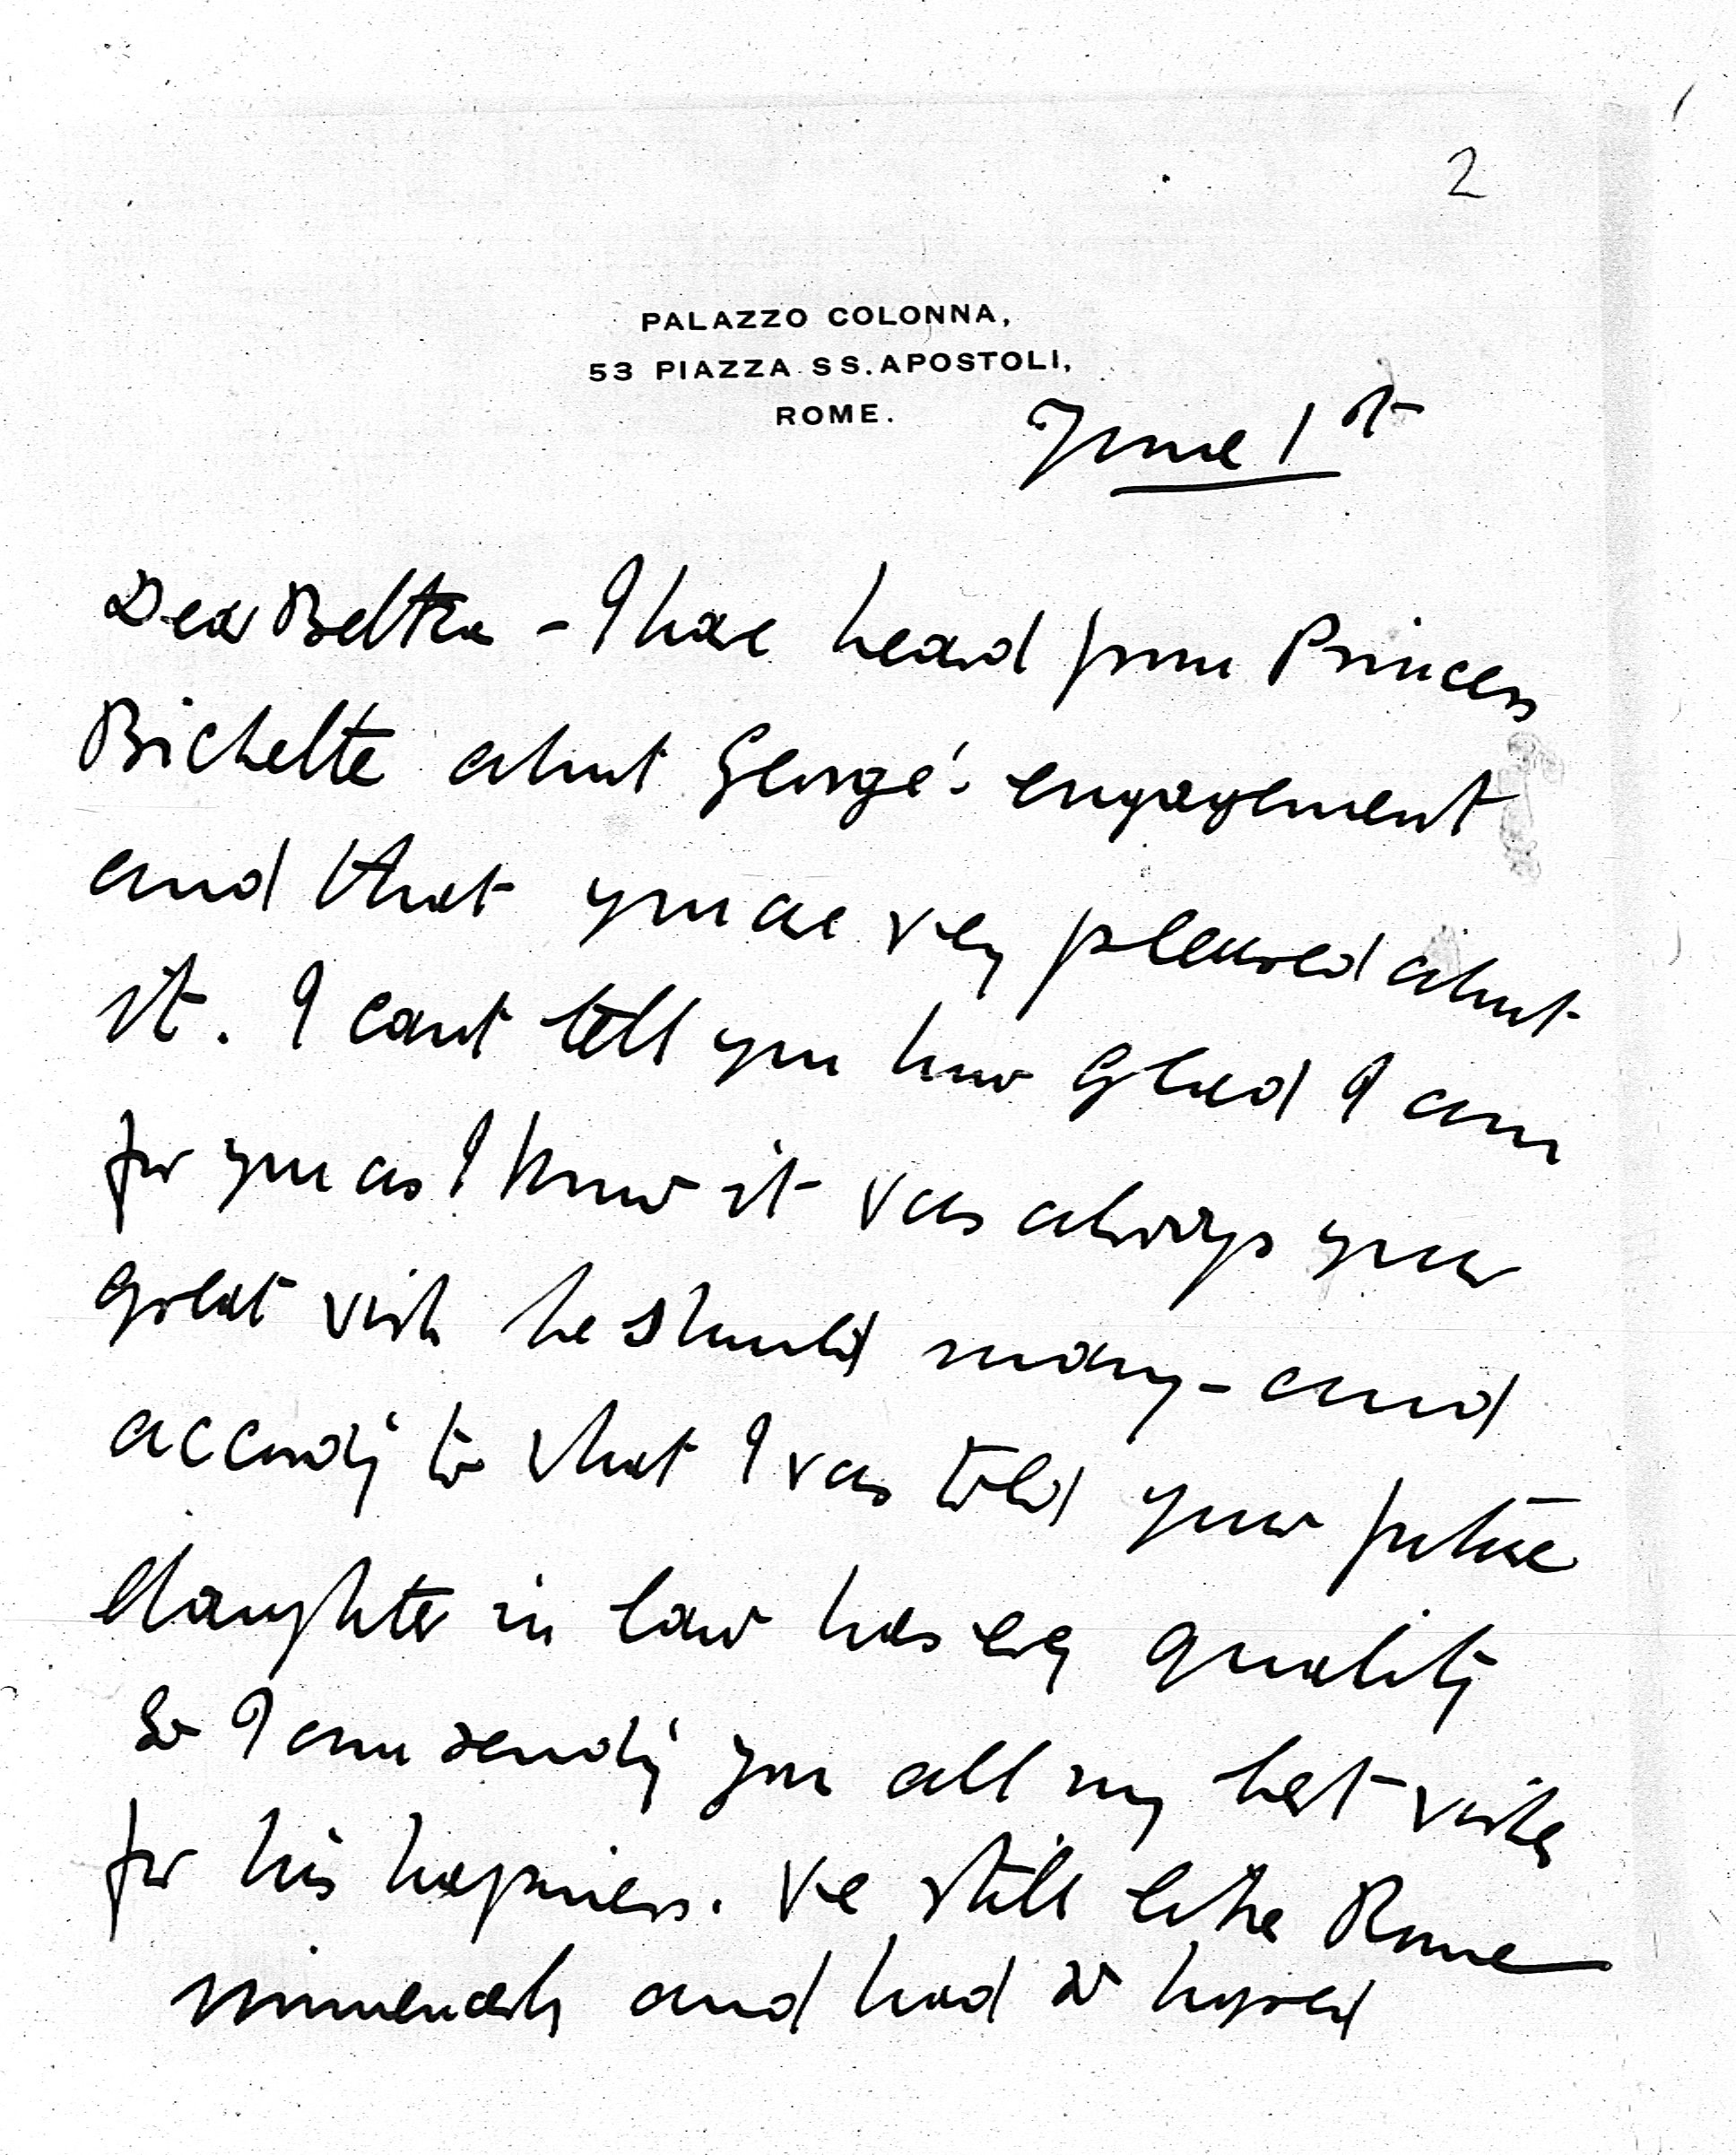 2
PALAZZO COLONNA,
53 PIAZZA SS. APOSTOLI,
ROME.
June 1st
Dear Beltra - I have heard from Princess
Bichette about George's engagement
and that you are very pleased about
it. I cant tell you how glad I am
for you as I know it was always your
great wish he should marry - and
according to what I was told your future
daughter in law has every quality
So I am sending you all my best wishes
for his happiness. We still like Rome
immensely and had so hoped